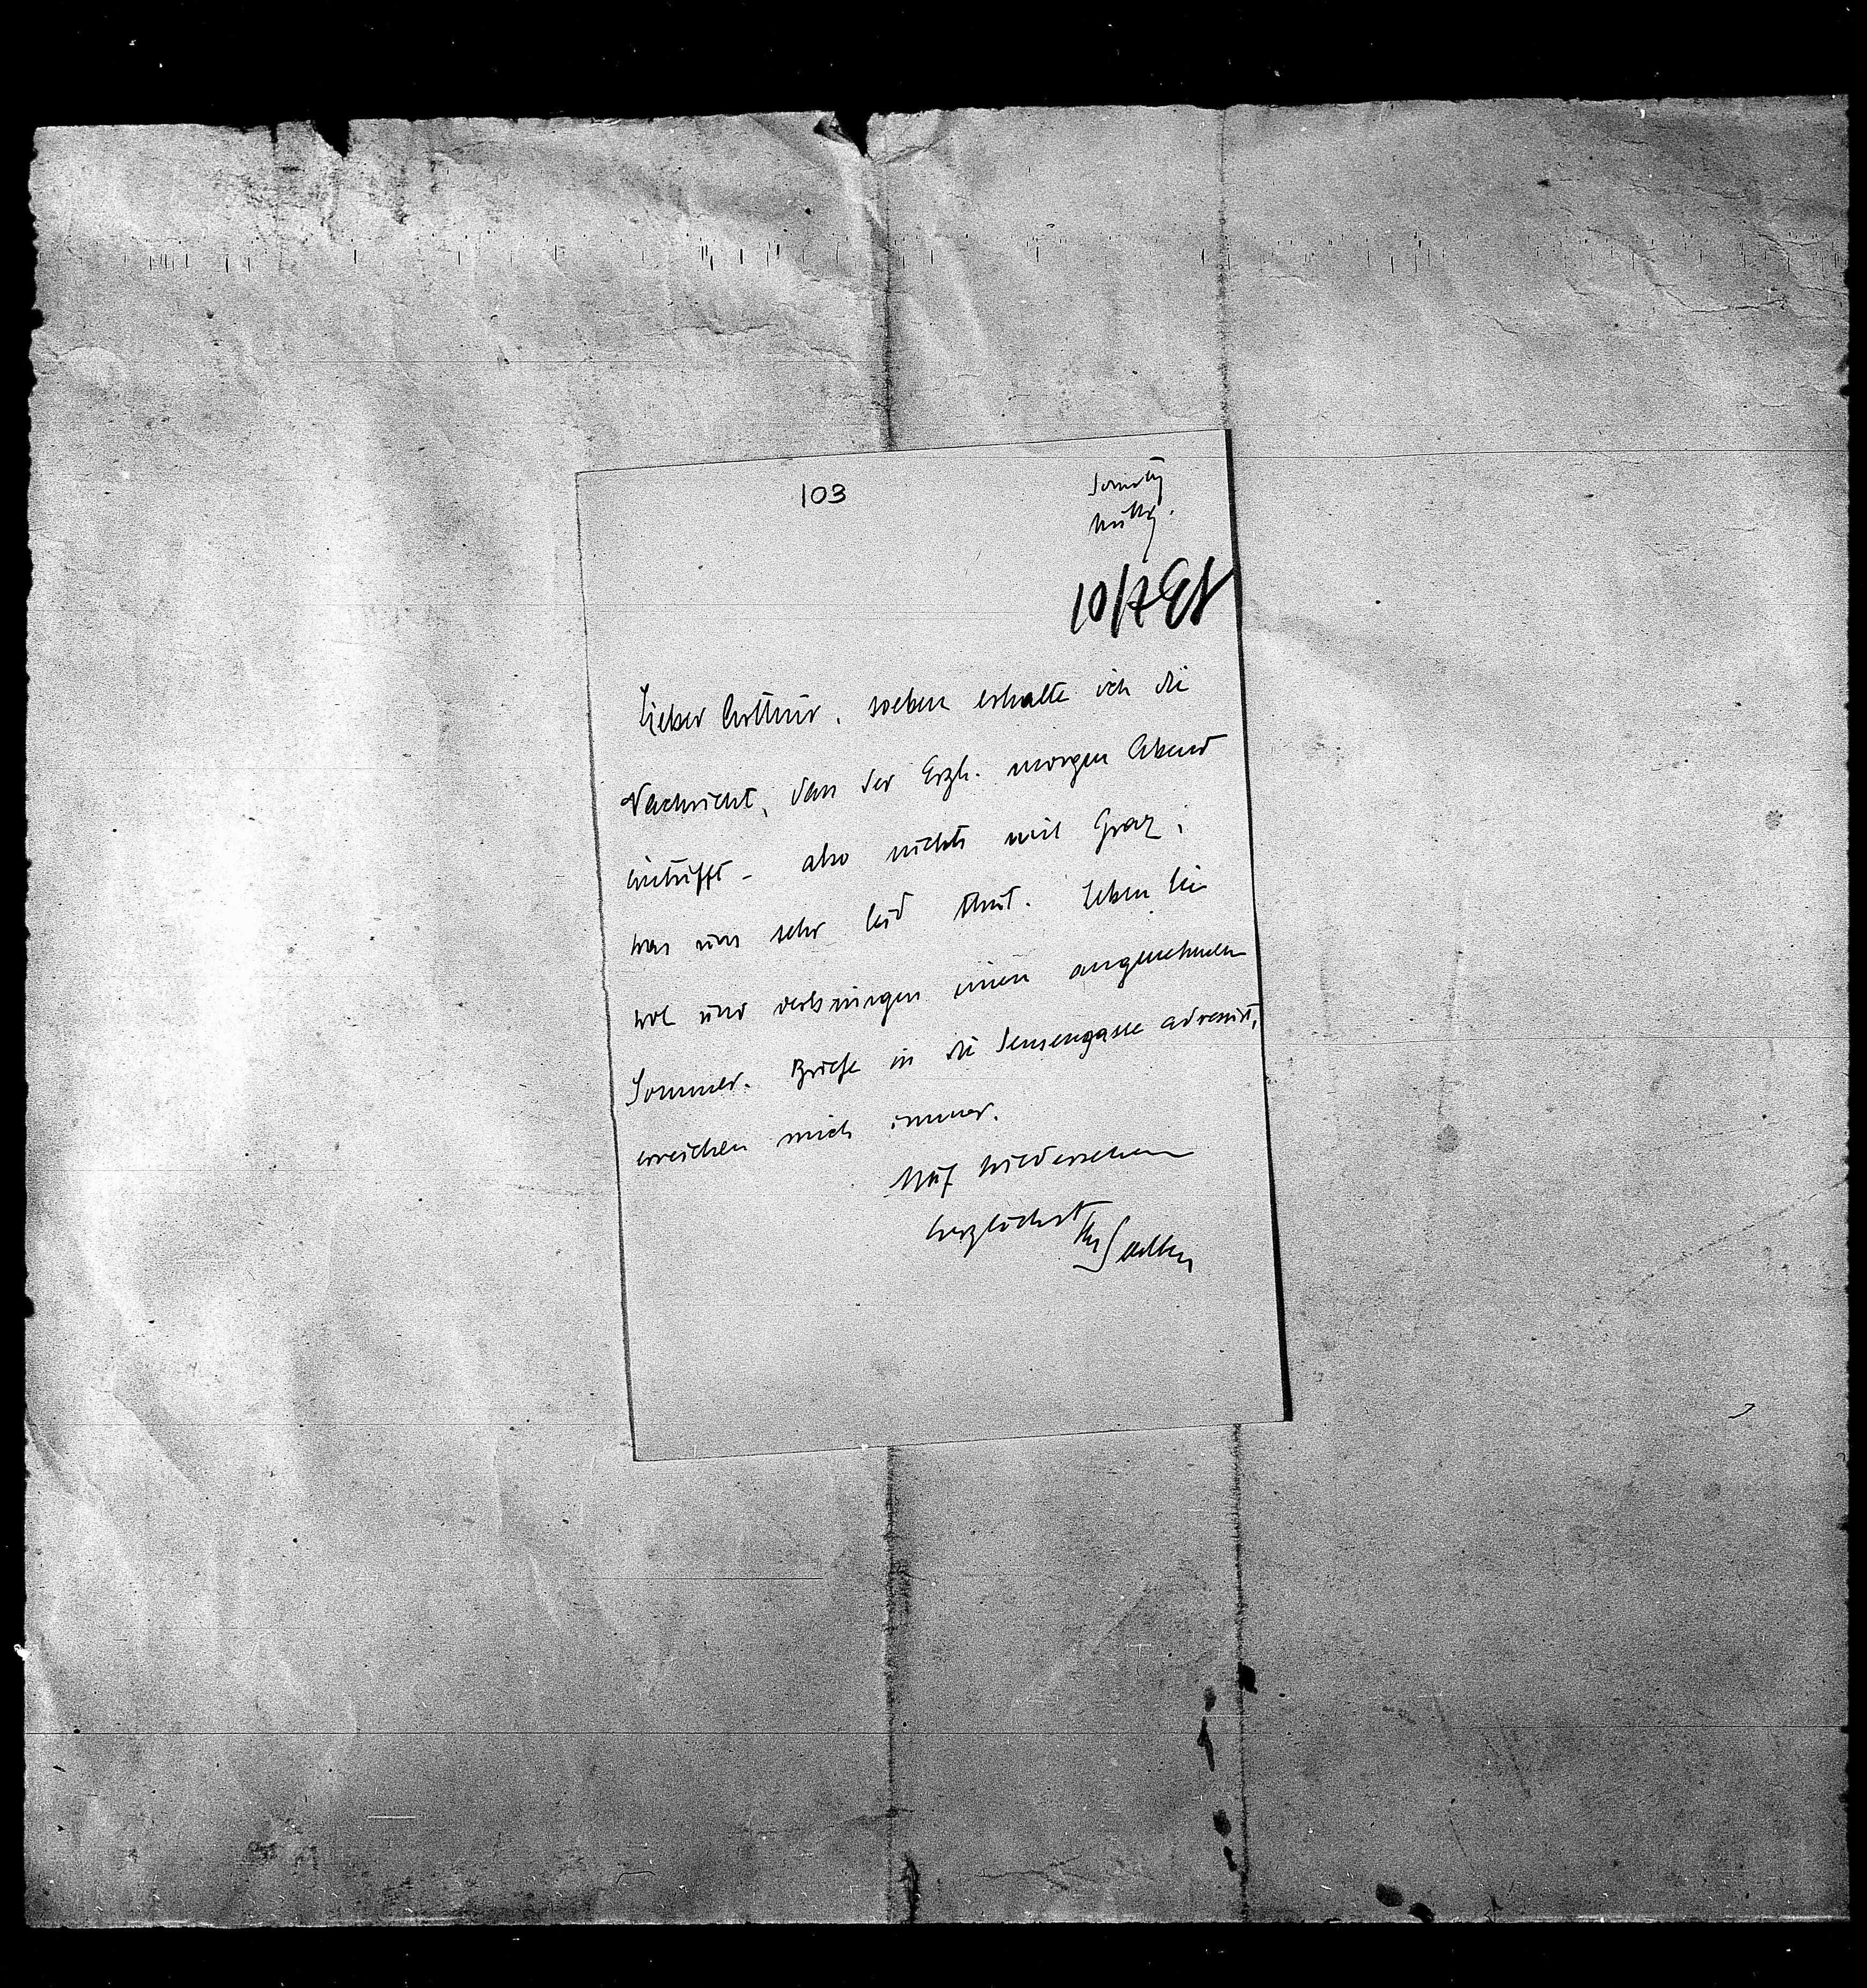 103
Sonntag
Mittag.
10/7 98
Lieber Arthur, soeben erhalte ich die
Nachricht, dass der Erzh. morgen Abend
eintrifft – also nichts mit Graz,
was uns sehr leid thut. Leben Sie
wol und verbringen einen angenehmen
Sommer. Briefe in die Sensengasse adressirt,
erreichen mich immer.
Auf Wiedersehen
herzlichst
Ihr Salten